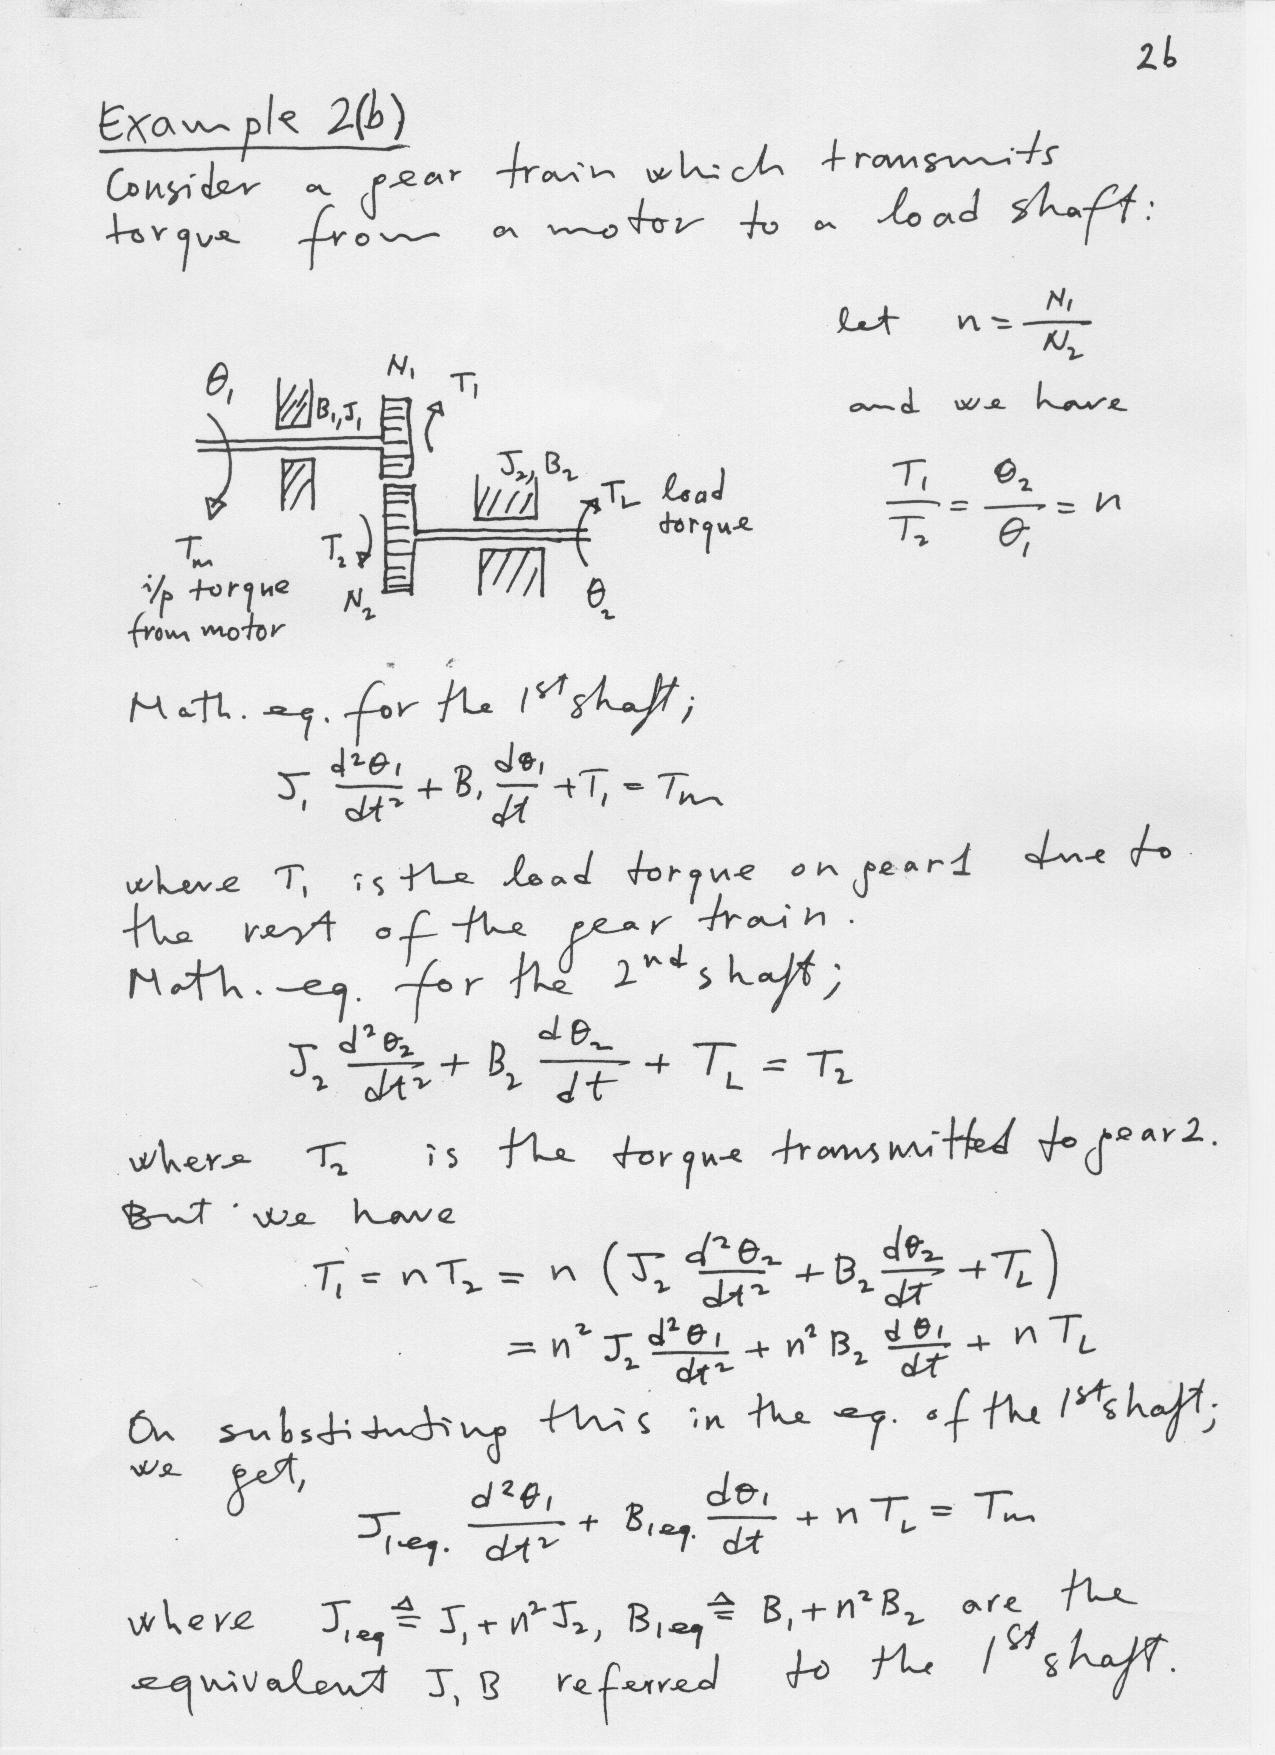 26
Example 2(b)
Consider a gear train which transmits
torque from a motor to a load shaft:
let n = N₁/N₂
and we have
T₁/T₂ = θ₂/θ₁ = n
θ₁
B₁, J₁
N₁
T₁
J₂, B₂
T_L load
torque
T_m
i/p torque
from motor
T₂
N₂
θ₂
Math. eq. for the 1st shaft;
J₁ d²θ₁/dt² + B₁ dθ₁/dt + T₁ = T_m
where T₁ is the load torque on gear1 due to
the rest of the gear train.
Math. eq. for the 2nd shaft;
J₂ d²θ₂/dt² + B₂ dθ₂/dt + T_L = T₂
where T₂ is the torque transmitted to gear2.
But we have
T₁ = nT₂ = n (J₂ d²θ₂/dt² + B₂ dθ₂/dt + T_L)
= n² J₂ d²θ₁/dt² + n² B₂ dθ₁/dt + n T_L
On substituting this in the eq. of the 1st shaft;
we get,
J₁eq. d²θ₁/dt² + B₁eq. dθ₁/dt + n T_L = T_m
where J₁eq ≜ J₁ + n² J₂, B₁eq ≜ B₁ + n² B₂ are the
equivalent J, B referred to the 1st shaft.